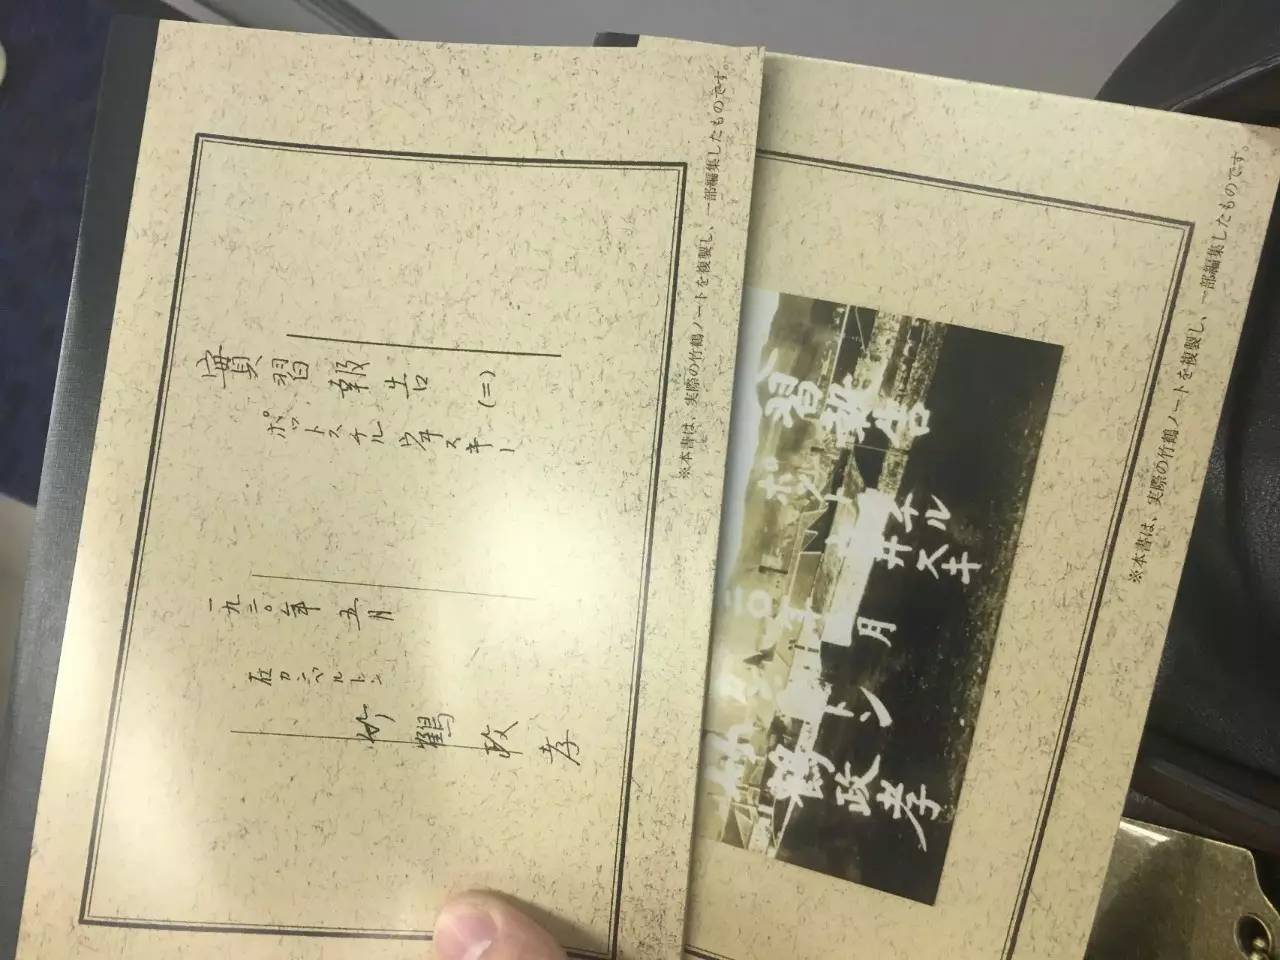 實習報告 (二)
ポットスチル ウヰスキー
一九二〇年 五月
在カンベルトン
竹鶴政孝
※本書は、実際の竹鶴ノートを複製し、一部編集したものです。
習報告
ポットスチル
井スキ
二〇年 月
トン
竹鶴政孝
※本書は、実際の竹鶴ノートを複製し、一部編集したものです。